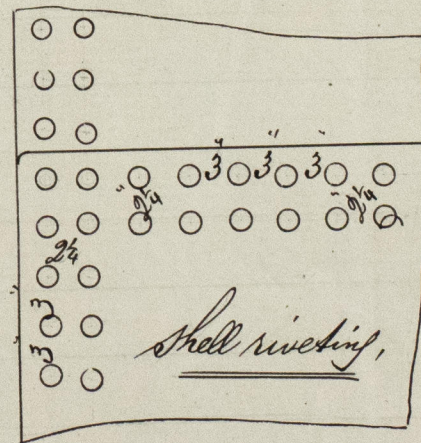 3" 3" 3"
2¼" 2¼"
2¼
3"
3"
shell riveting,